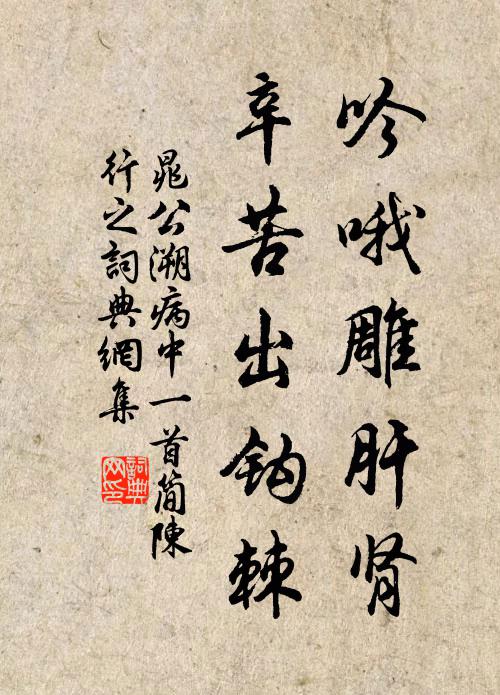 吟哦雕肝肾
辛苦出钩棘
晁公溯病中一首简陳
行之詞典網集
詞典
网印